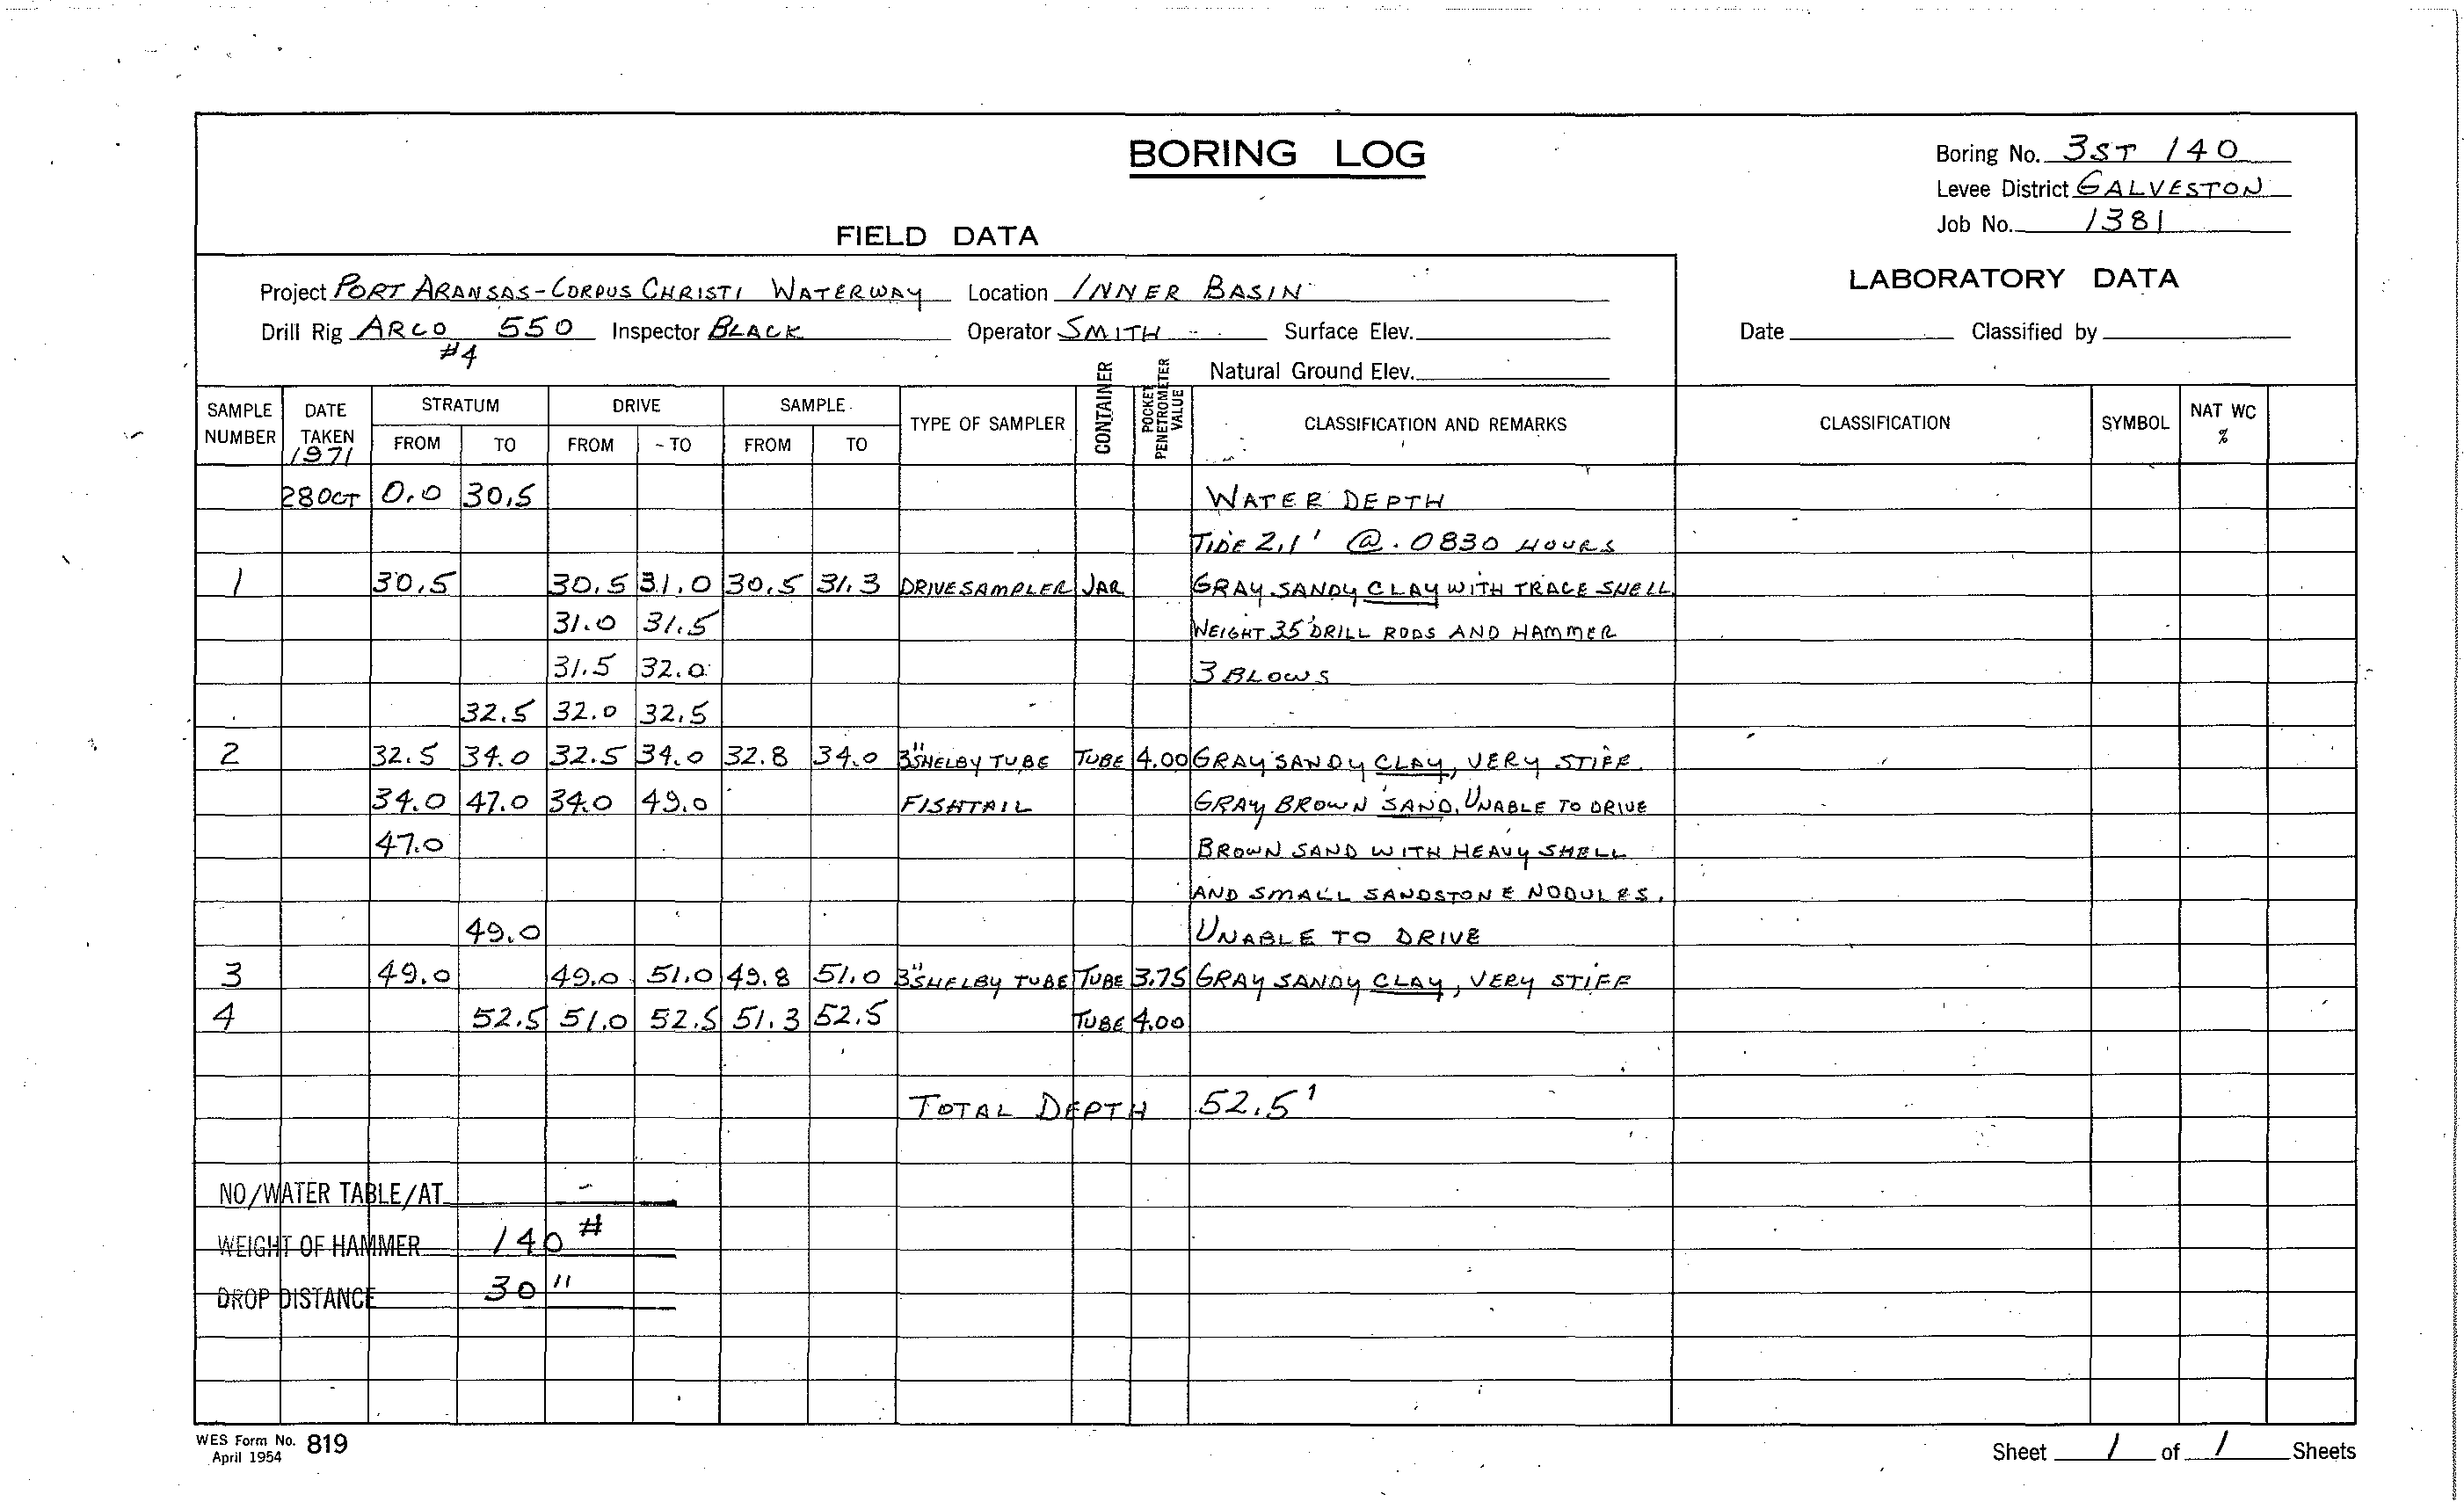 BORING LOG
Boring No. 3ST 140
Levee District GALVESTON
Job No. 1381
FIELD DATA
LABORATORY DATA
Project PORT ARANSAS-CORPUS CHRISTI WATERWAY Location INNER BASIN
Drill Rig ARCO 550 Inspector BLACK Operator SMITH Surface Elev.
#4
Date Classified by
Natural Ground Elev.
SAMPLE NUMBER DATE TAKEN STRATUM DRIVE SAMPLE TYPE OF SAMPLER CONTAINER POCKET PENETROMETER VALUE CLASSIFICATION AND REMARKS CLASSIFICATION SYMBOL NAT WC %
FROM TO FROM - TO FROM TO
1971
28 OCT 0.0 30.5 WATER DEPTH
TIDE 2.1' @ 0830 HOURS
1 30.5 30.5 31.0 30.5 31.3 DRIVE SAMPLER JAR GRAY SANDY CLAY WITH TRACE SHELL
31.0 31.5 WEIGHT 35' DRILL RODS AND HAMMER
31.5 32.0 3 BLOWS
32.5 32.0 32.5
2 32.5 34.0 32.5 34.0 32.8 34.0 3" SHELBY TUBE TUBE 4.00 GRAY SANDY CLAY, VERY STIFF
34.0 47.0 34.0 49.0 FISHTAIL GRAY BROWN SAND, UNABLE TO DRIVE
47.0 BROWN SAND WITH HEAVY SHELL
AND SMALL SANDSTONE NODULES.
49.0 UNABLE TO DRIVE
3 49.0 49.0 51.0 49.8 51.0 3" SHELBY TUBE TUBE 3.75 GRAY SANDY CLAY, VERY STIFF
4 52.5 51.0 52.5 51.3 52.5 TUBE 4.00
TOTAL DEPTH 52.5'
NO/WATER TABLE/AT -
WEIGHT OF HAMMER 140 #
DROP DISTANCE 30"
WES Form No. 819
April 1954
Sheet 1 of 1 Sheets